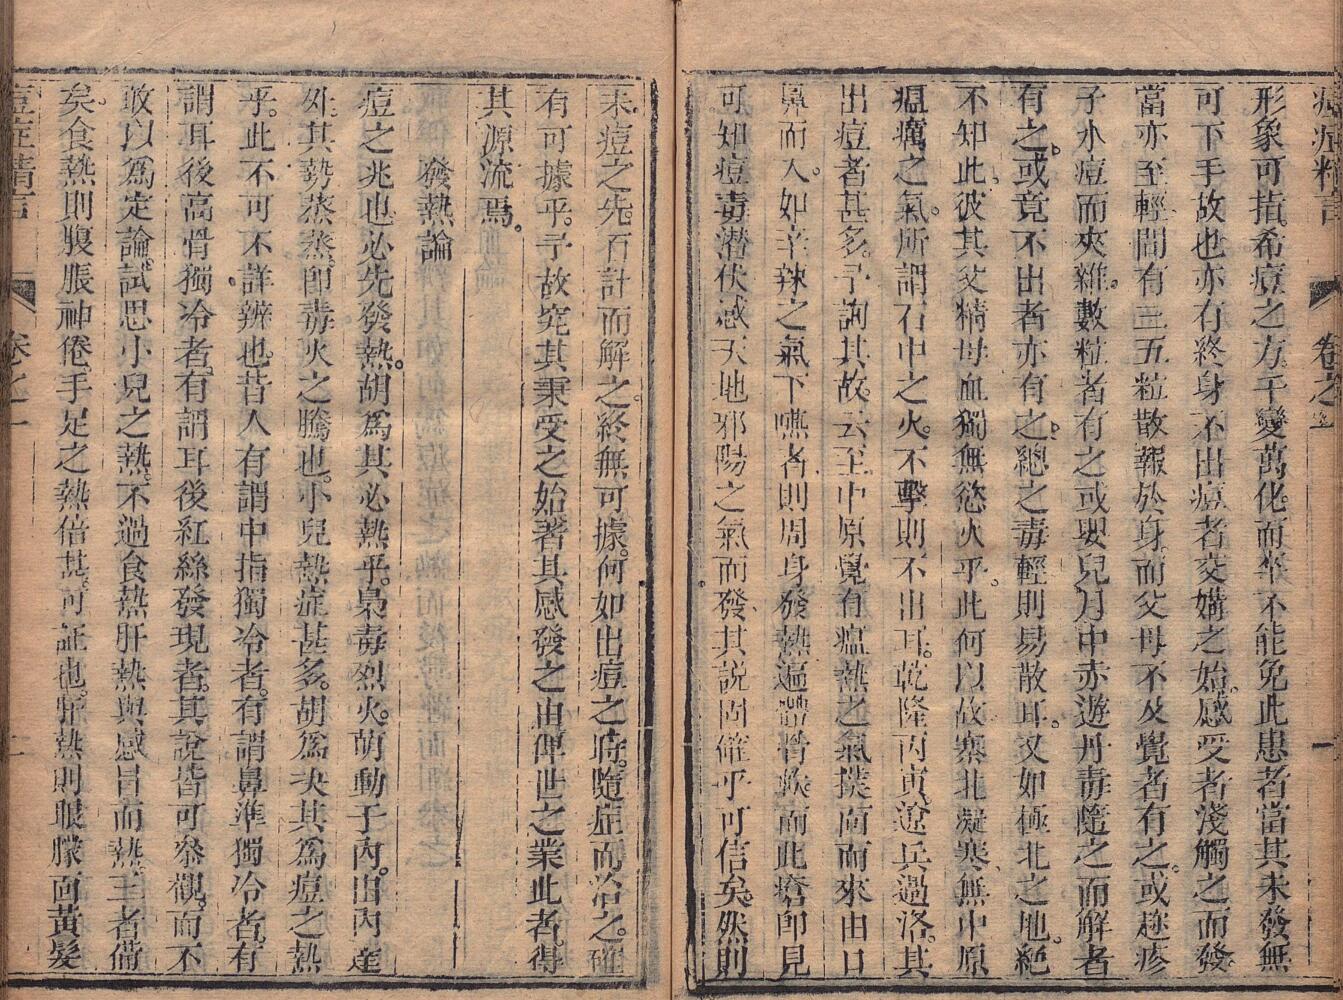 痘症精言 卷之一 一
形象可指希痘之方千變萬化而卒不能免此患者當其未發無
可下手故也亦有終身不出痘者交媾之始感受者淺觸之而發
當亦至輕間有三五粒散報於身而父母不及覺者有之或趂疹
子水痘而夾雜數粒者有之或嬰兒月中赤遊丹毒隨之而解者
有之或竟不出者亦有之總之毒輕則易散耳又如極北之地絕
不知此彼其父精母血獨無慾火乎此何以故寨北凝寒無中原
瘟癘之氣所謂石中之火不擊則不出耳乾隆丙寅遼兵過洛其
出痘者甚多予詢其故云至中原覺有瘟熱之氣撲面而來由口
鼻而入如辛辣之氣下嚥者則周身發熱遍體骨軟而此瘡即見
可如痘毒潛伏感天地邪陽之氣而發其說固確乎可信矣然則
未痘之先百計而解之終無可據何如出痘之時隨症而治之確
有可據乎予故究其秉受之始著其感發之由俾世之業此者得
其源流焉
發熱論
痘之兆也必先發熱胡為其必熱乎梟毒烈火萌動于內由內達
外其勢蒸蒸即毒火之騰也小兒熱症甚多胡為決其為痘之熱
乎此不可不詳辨也昔人有謂中指獨冷者有謂鼻準獨冷者有
謂耳後高骨獨冷者有謂耳後紅絲發現者其說皆可叅觀而不
敢以為定論試思小兒之熱不過食熱肝熱與感冒而熱三者備
矣食熱則腹脹神倦手足之熱倍甚可証也肝熱則眼朦面黃髮
痘症精言 卷之一 二